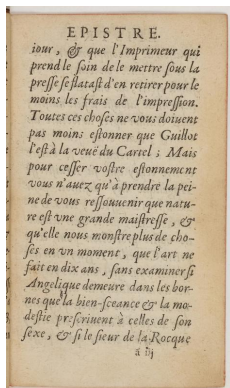 EPISTRE.
iour, & que l'Imprimeur qui
prend le soin de le mettre sous la
presse se flatast d'en retirer pour le
moins les frais de l'impression.
Toutes ces choses ne vous doiuent
pas moins estonner que Guillot
l'est à la veuë du Cartel ; Mais
pour cesser vostre estonnement
vous n'auez qu'à prendre la pei-
ne de vous ressouuenir que natu-
re est vne grande maistresse, &
qu'elle nous monstre plus de cho-
ses en vn moment, que l'art ne
fait en dix ans, sans examiner si
Angelique demeure dans les bor-
nes que la bien-sceance & la mo-
destie prescriuent à celles de son
sexe, & si le sieur de la Rocque
ã iij